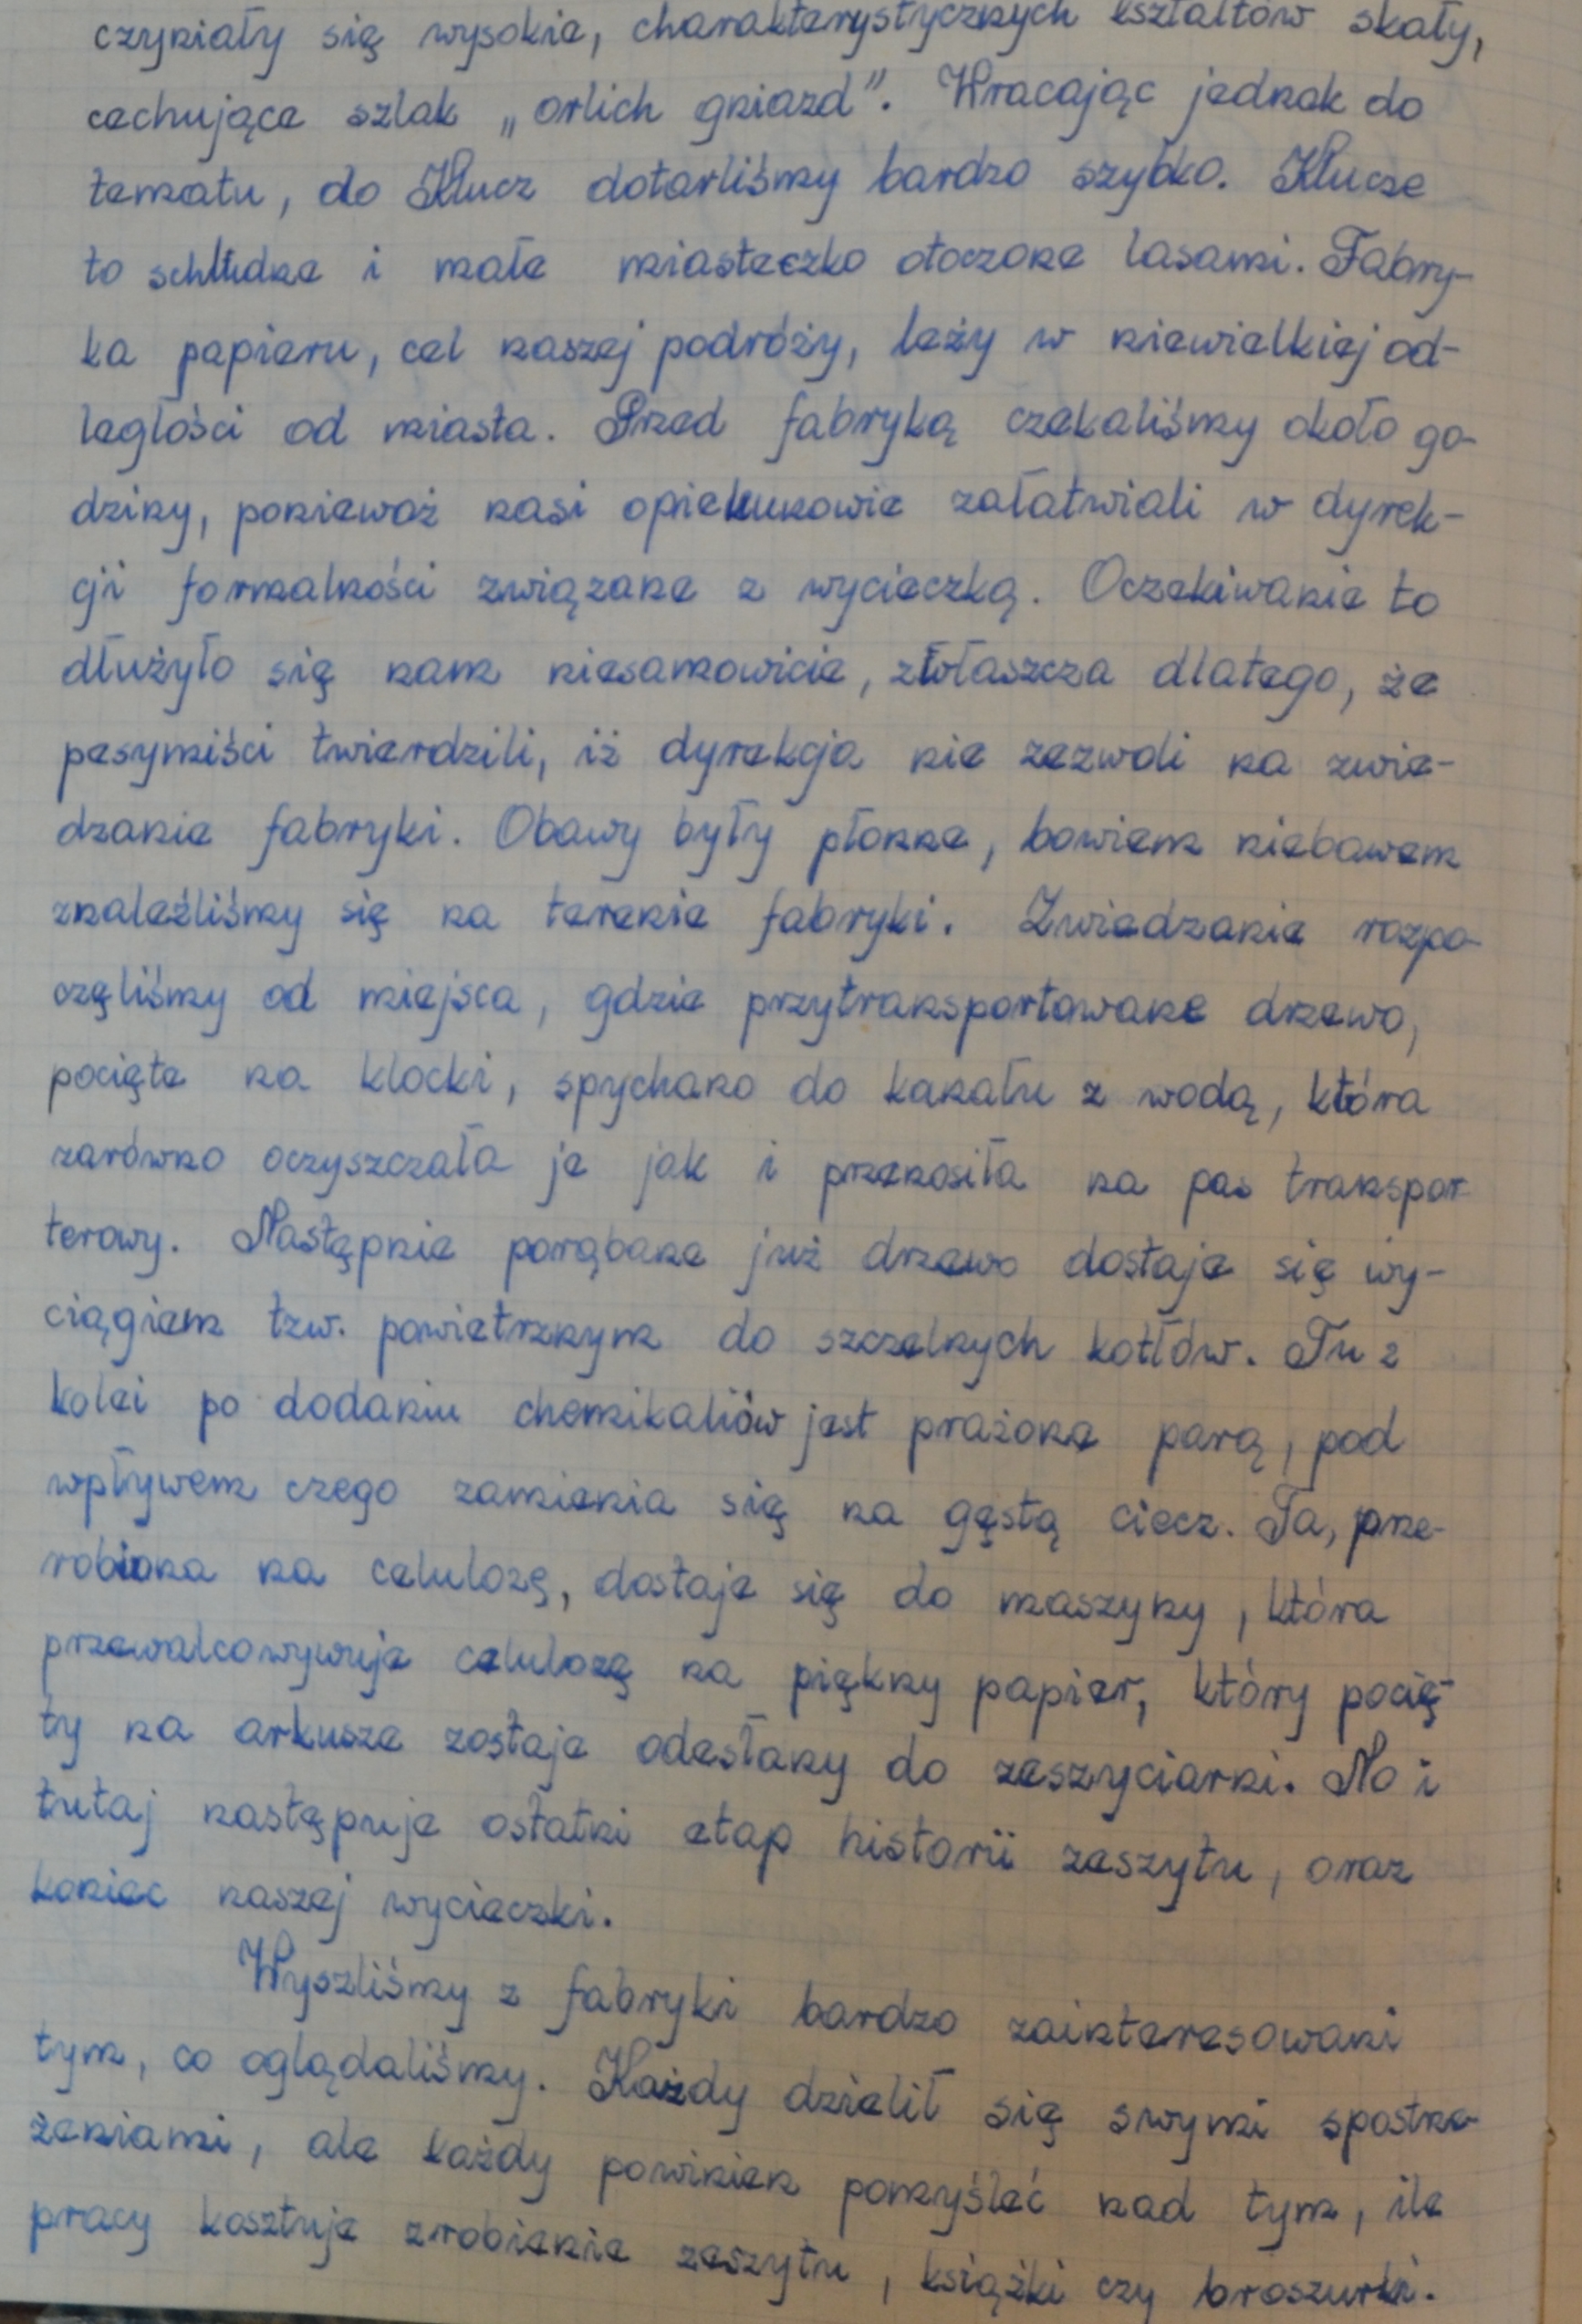 czyniały się wysokie, charakterystycznych kształtów skały,
cechujące szlak „orlich gniazd”. Wracając jednak do
tematu, do Klucz dotarliśmy bardzo szybko. Klucze
to schludne i małe miasteczko otoczone lasami. Fabry-
ka papieru, cel naszej podróży, leży w niewielkiej od-
ległości od miasta. Przed fabryką czekaliśmy około go-
dziny, ponieważ nasi opiekunowie załatwiali w dyrek-
cji formalności związane z wycieczką. Oczekiwanie to
dłużyło się nam niesamowicie, zwłaszcza dlatego, że
pesymiści twierdzili, iż dyrekcja nie zezwoli na zwie-
dzanie fabryki. Obawy były płonne, bowiem niebawem
znaleźliśmy się na terenie fabryki. Zwiedzanie rozpo-
częliśmy od miejsca, gdzie przytransportowane drzewo,
pocięte na klocki, spychano do kanału z wodą, która
zarówno oczyszczała je jak i przenosiła na pas transpor
terowy. Następnie porąbane już drzewo dostaje się wy-
ciągiem tzw. powietrznym do szczelnych kotłów. Tu z
kolei po dodaniu chemikaliów jest prażone parą, pod
wpływem czego zamienia się na gęstą ciecz. Ta, prze-
robiona na celulozę, dostaje się do maszyny, która
przewalcowywuje celulozę na piękny papier, który pocię-
ty na arkusze zostaje odesłany do zeszyciarni. No i
tutaj następuje ostatni etap historii zeszytu, oraz
koniec naszej wycieczki.
Wyszliśmy z fabryki bardzo zainteresowani
tym, co oglądaliśmy. Każdy dzielił się swymi spostrze-
żeniami, ale każdy powinien pomyśleć nad tym, ile
pracy kosztuje zrobienie zeszytu, książki czy broszurki.